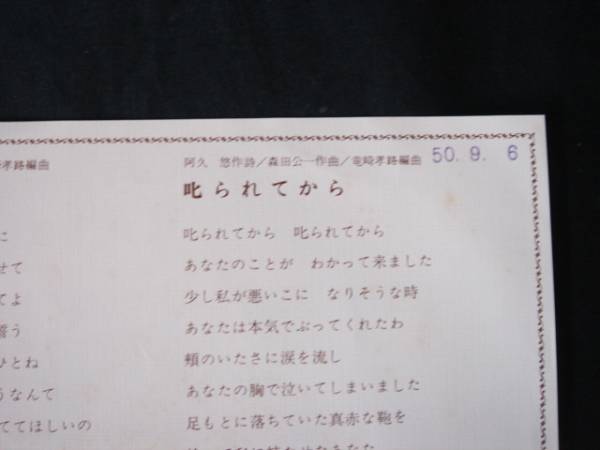 孝路編曲
に
せて
てよ
誓う
ひとね
うなんて
ててほしいの
阿久 悠作詩／森田公一作曲／竜崎孝路編曲 50. 9. 6
叱られてから
叱られてから 叱られてから
あなたのことが わかって来ました
少し私が悪いこに なりそうな時
あなたは本気でぶってくれたわ
頬のいたさに涙を流し
あなたの胸で泣いてしまいました
足もとに落ちていた真赤な鞄を